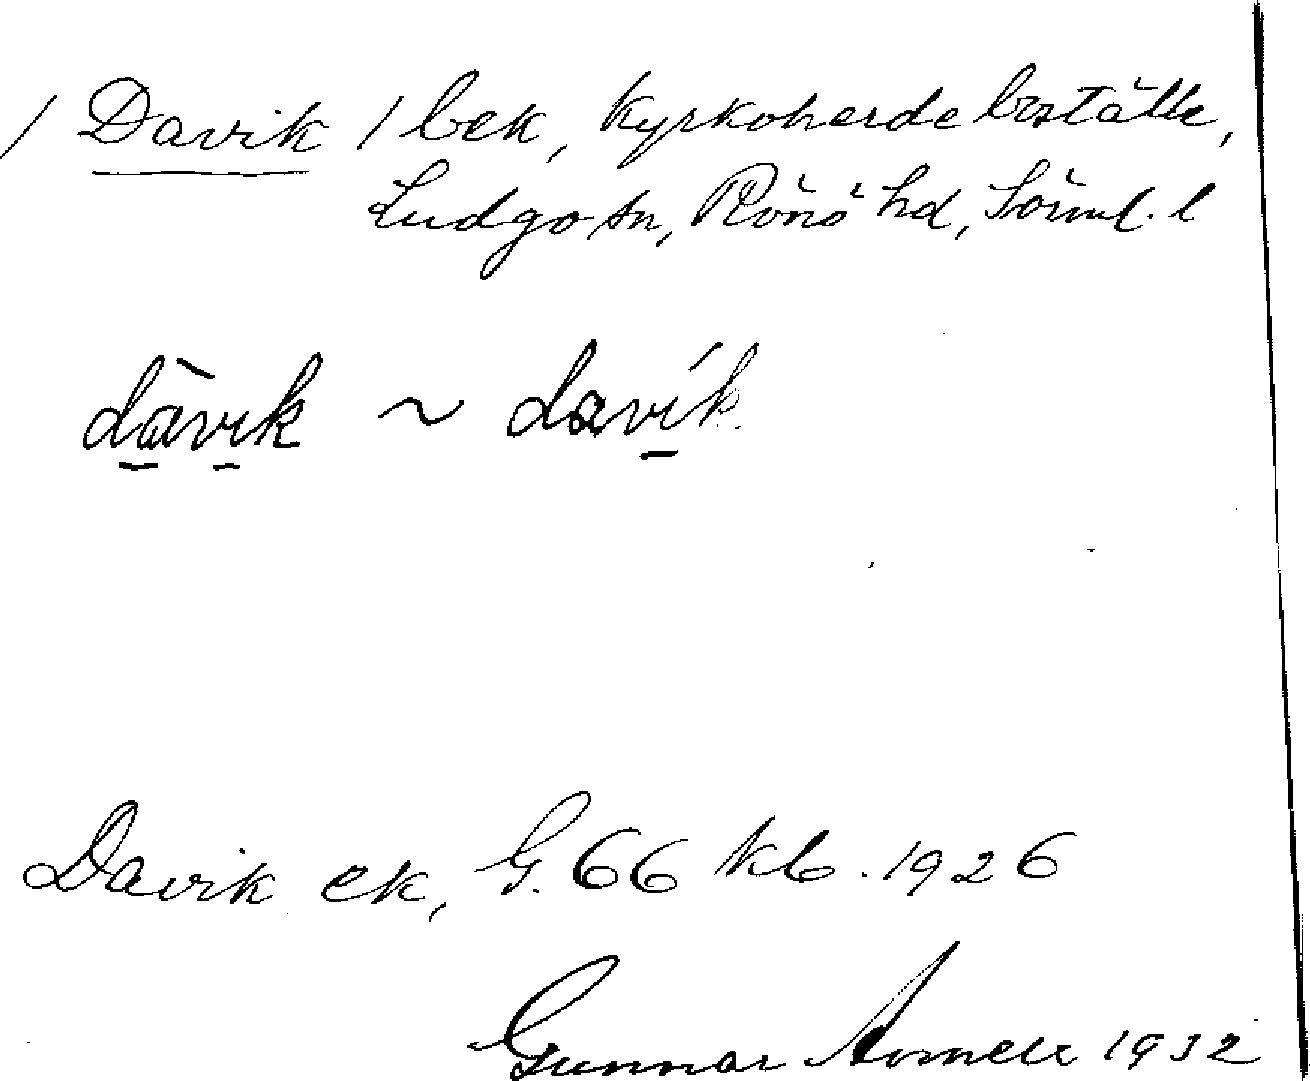 / Davik / bek, kyrkoherdeboställe,
Ludgo sn, Rönö hd, Söml. l
dàvik ~ davík
Davik ek, G. 66 kb. 1926
Gunnar 1932